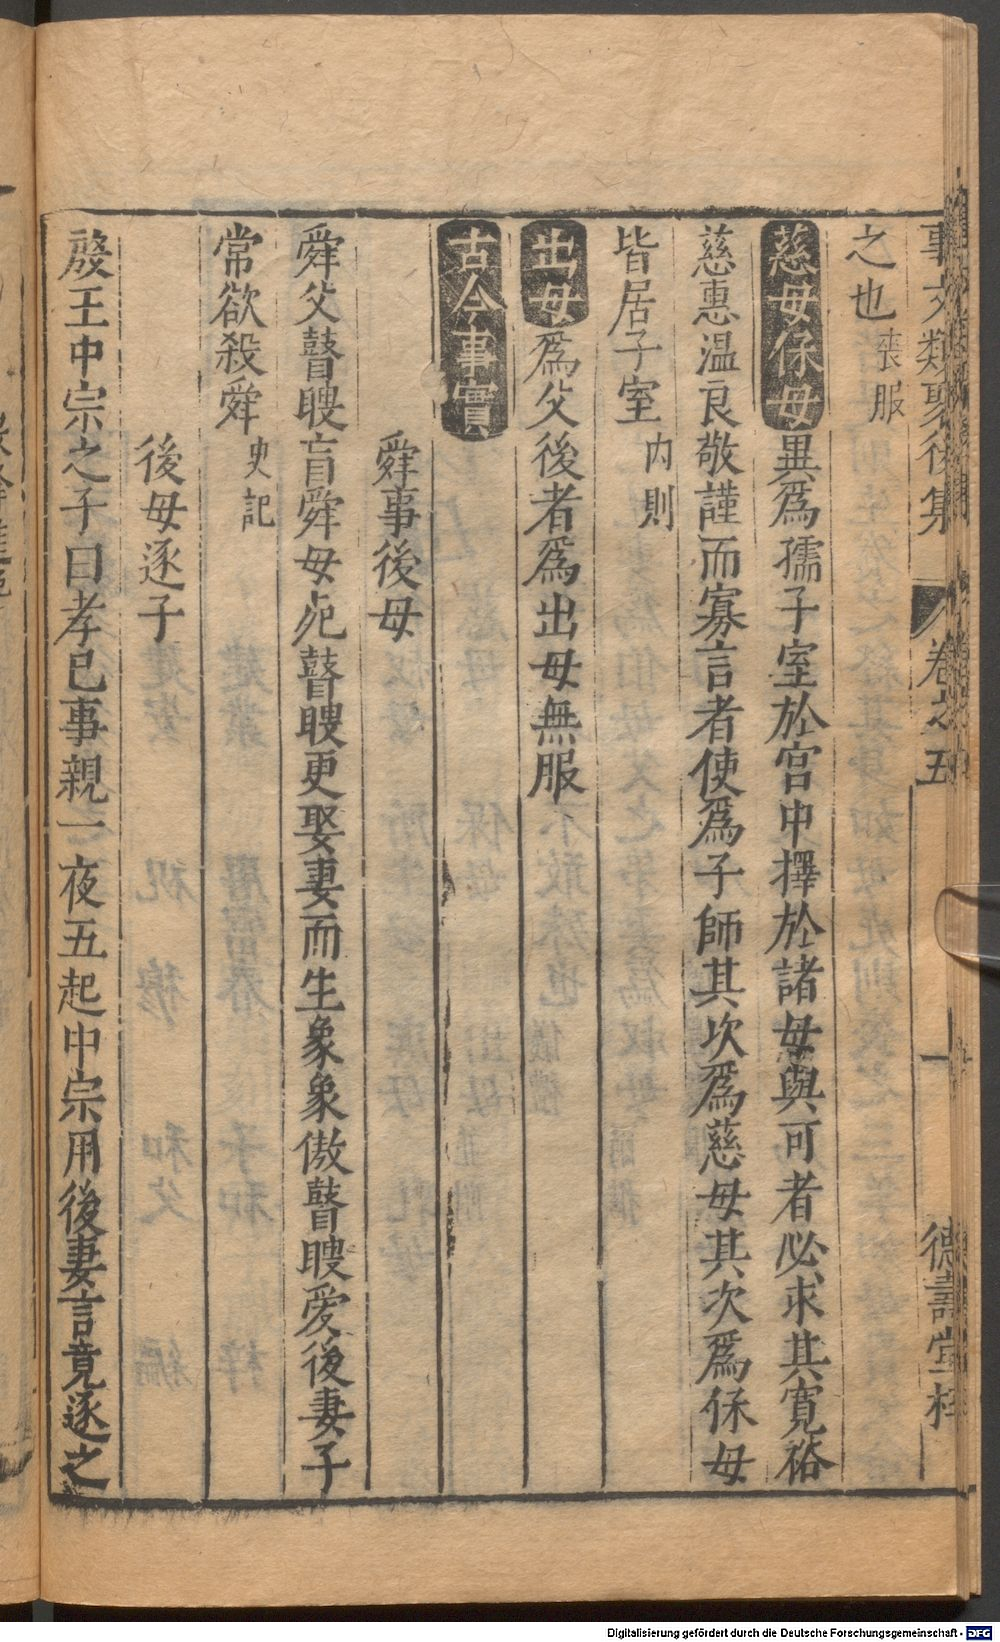 事文類聚後集 卷之五 一 德壽堂梓
之也 喪服
慈母保母異爲孺子室於宮中擇於諸母與可者必求其寬裕
慈惠温良敬謹而寡言者使爲子師其次爲慈母其次爲保母
皆居子室 内則
出母爲父後者爲出母無服
古今事實
舜事後母
舜父瞽瞍盲舜母死瞽瞍更娶妻而生象象傲瞽瞍愛後妻子
常欲殺舜 史記
後母逐子
殷王中宗之子曰孝已事親一夜五起中宗用後妻言竟逐之
Digitalisierung gefördert durch die Deutsche Forschungsgemeinschaft - DFG